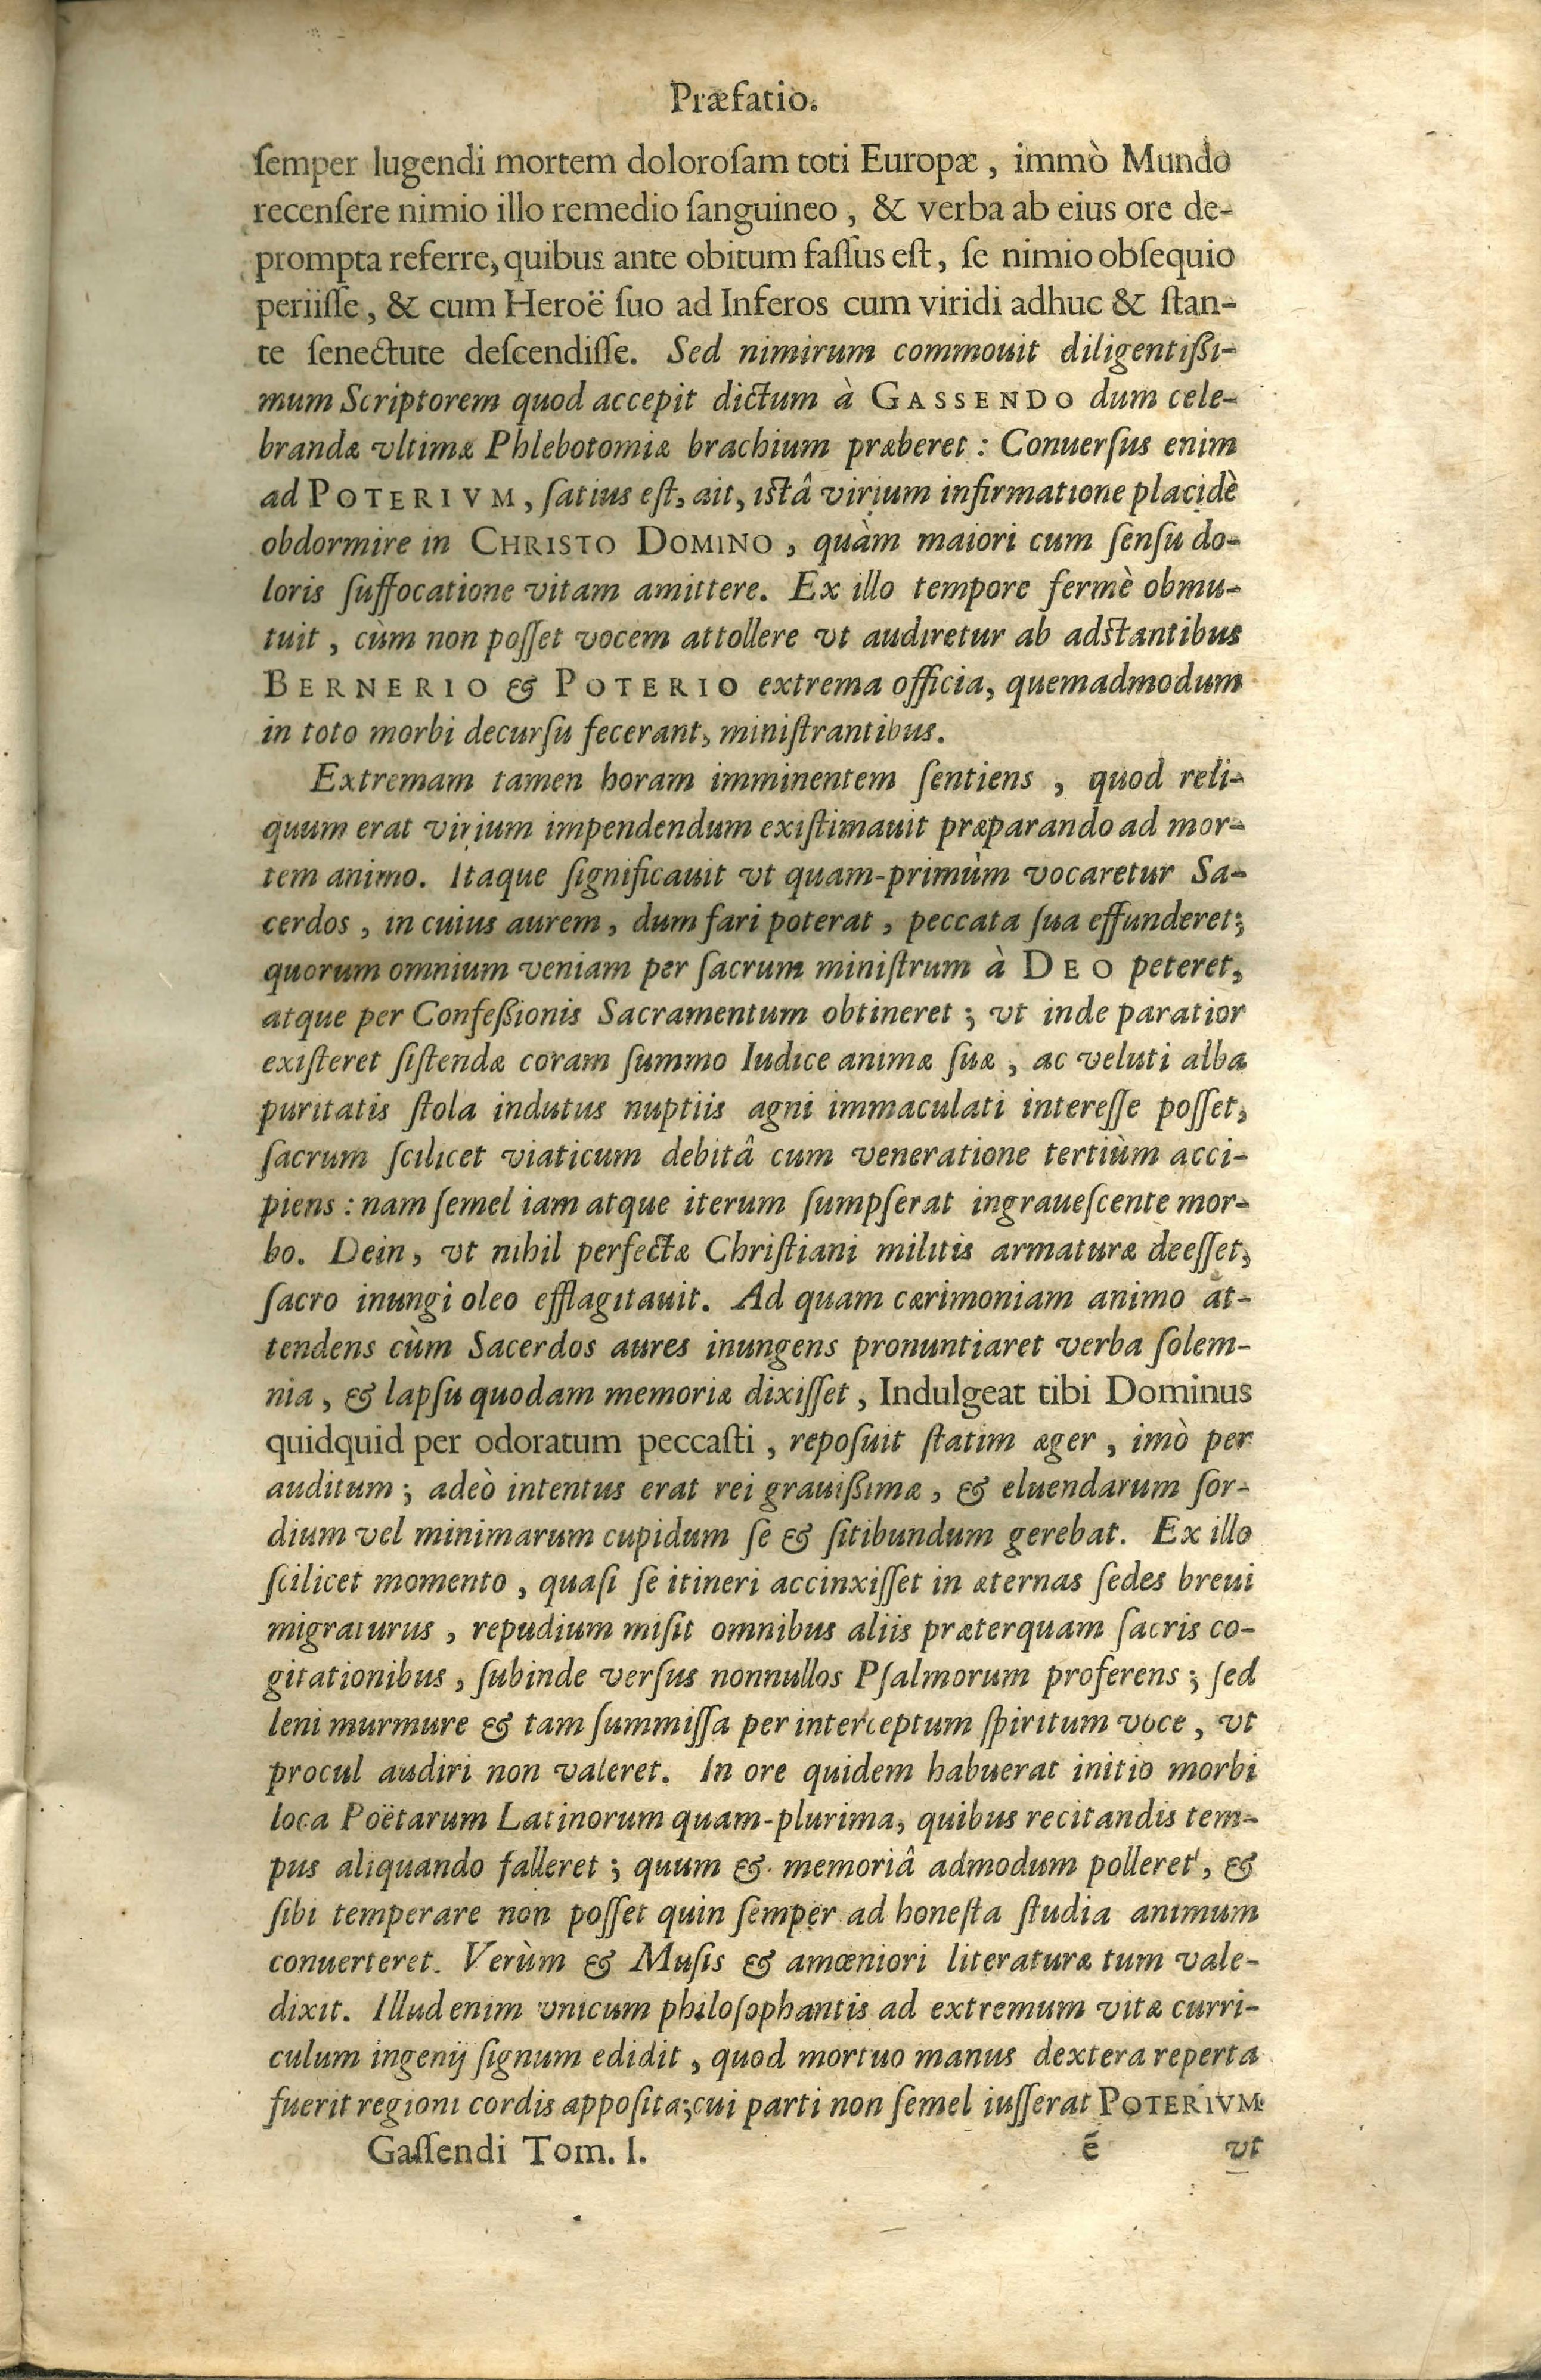 Præfatio.
ſemper lugendi mortem doloroſam toti Europæ, immò Mundo
recenſere nimio illo remedio ſanguineo, & verba ab eius ore de-
prompta referre, quibus ante obitum faſſus eſt, ſe nimio obſequio
periiſſe, & cum Heroë ſuo ad Inferos cum viridi adhuc & ſtan-
te ſenectute deſcendiſſe. Sed nimirum commouit diligentißi-
mum Scriptorem quod accepit dictum à GASSENDO dum cele-
brandæ vltimæ Phlebotomiæ brachium præberet : Conuerſus enim
ad POTERIVM, ſatius eſt, ait, iſtâ virium infirmatione placidè
obdormire in CHRISTO DOMINO, quàm maiori cum ſenſu do-
loris ſuffocatione vitam amittere. Ex illo tempore fermè obmu-
tuit, cùm non poſſet vocem attollere vt audiretur ab adſtantibus
BERNERIO & POTERIO extrema officia, quemadmodum
in toto morbi decurſu fecerant, miniſtrantibus.
Extremam tamen horam imminentem ſentiens, quod reli-
quum erat virium impendendum exiſtimauit præparando ad mor-
tem animo. Itaque ſignificauit vt quam-primùm vocaretur Sa-
cerdos, in cuius aurem, dum fari poterat, peccata ſua effunderet;
quorum omnium veniam per ſacrum miniſtrum à DEO peteret,
atque per Confeßionis Sacramentum obtineret ; vt inde paratior
exiſteret ſiſtendæ coram ſummo Iudice animæ ſuæ, ac veluti alba
puritatis ſtola indutus nuptiis agni immaculati intereſſe poſſet,
ſacrum ſcilicet viaticum debitâ cum veneratione tertiùm acci-
piens : nam ſemel iam atque iterum ſumpſerat ingraueſcente mor-
bo. Dein, vt nihil perfectæ Chriſtiani militis armaturæ deeſſet,
ſacro inungi oleo efflagitauit. Ad quam cærimoniam animo at-
tendens cùm Sacerdos aures inungens pronuntiaret verba ſolem-
nia, & lapſu quodam memoriæ dixiſſet, Indulgeat tibi Dominus
quidquid per odoratum peccaſti, repoſuit ſtatim æger, imò per
auditum ; adeò intentus erat rei grauißimæ, & eluendarum ſor-
dium vel minimarum cupidum ſe & ſitibundum gerebat. Ex illo
ſcilicet momento, quaſi ſe itineri accinxiſſet in æternas ſedes breui
migraturus, repudium miſit omnibus aliis præterquam ſacris co-
gitationibus, ſubinde verſus nonnullos Pſalmorum proferens ; ſed
leni murmure & tam ſummiſſa per interceptum ſpiritum voce, vt
procul audiri non valeret. In ore quidem habuerat initio morbi
loca Poëtarum Latinorum quam-plurima, quibus recitandis tem-
pus aliquando falleret ; quum & memoriâ admodum polleret, &
ſibi temperare non poſſet quin ſemper ad honeſta ſtudia animum
conuerteret. Verùm & Muſis & amœniori literaturæ tum vale-
dixit. Illud enim vnicum philoſophantis ad extremum vitæ curri-
culum ingenij ſignum edidit, quod mortuo manus dextera reperta
fuerit regioni cordis appoſita; cui parti non ſemel iuſſerat POTERIVM
Gaſſendi Tom. I. é vt